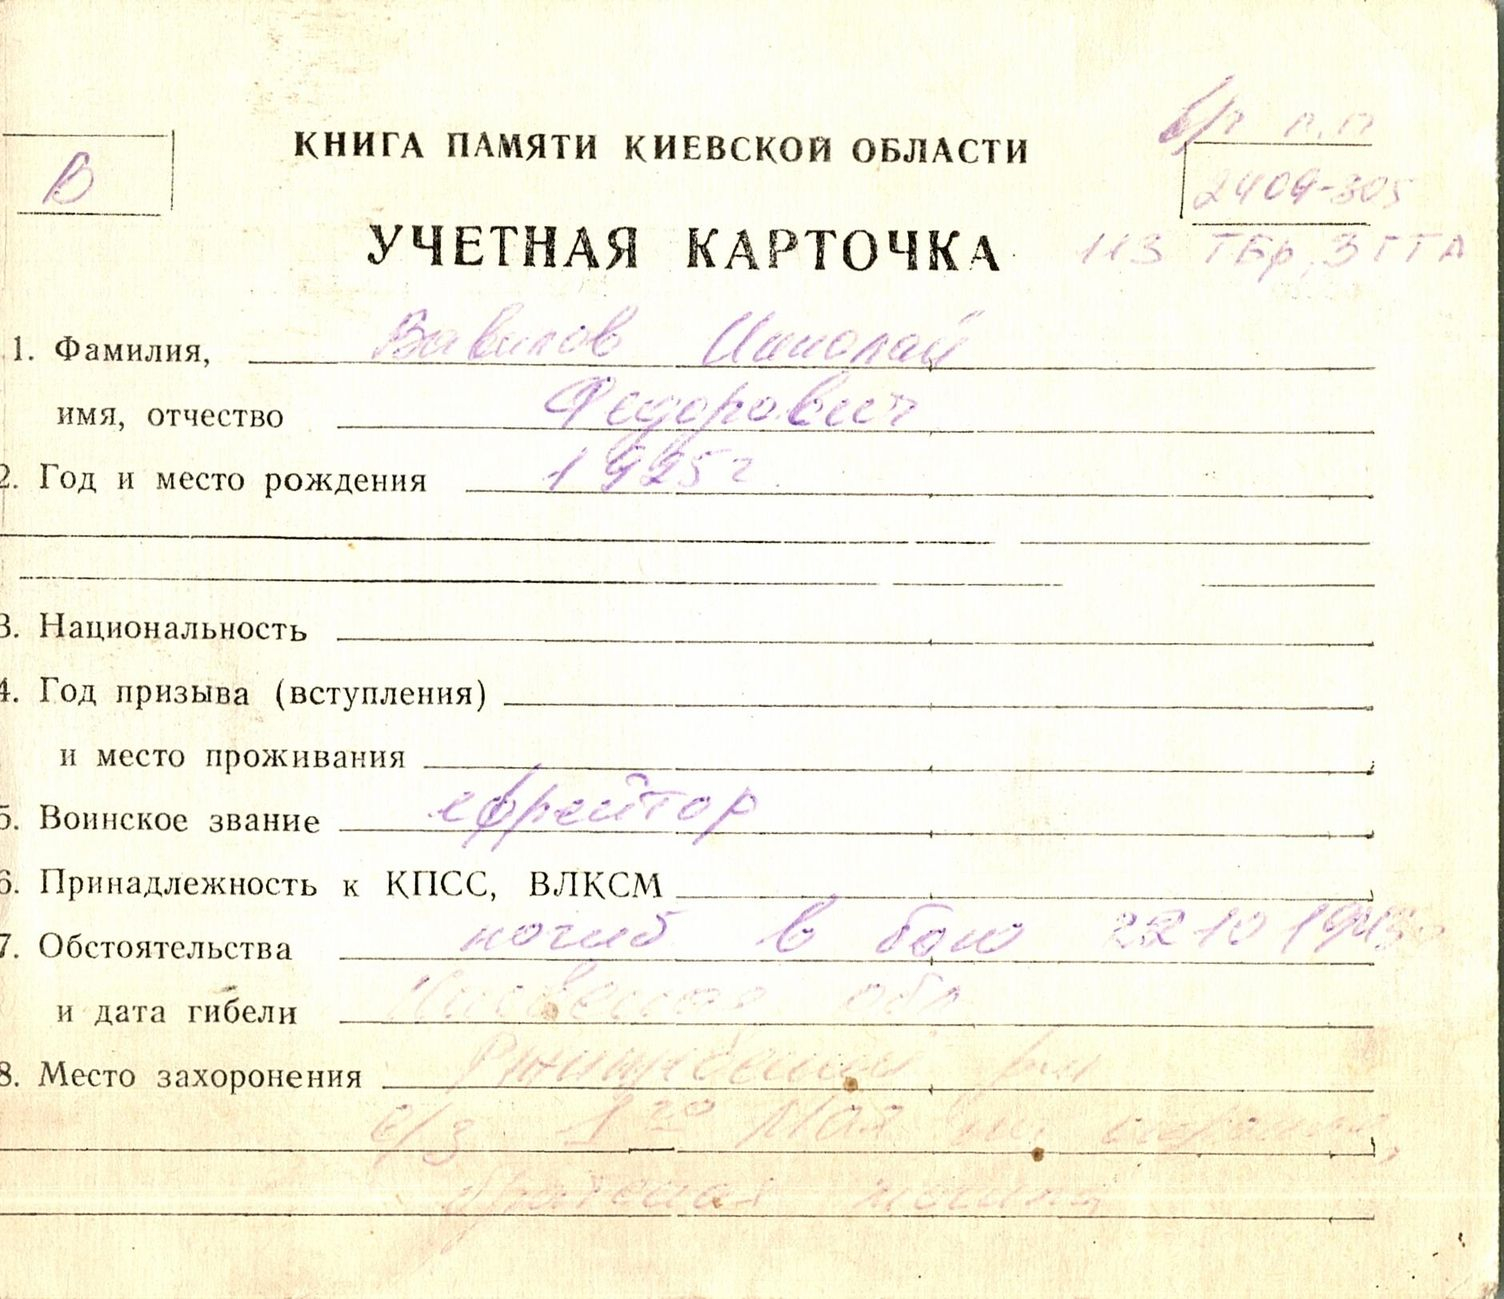 в/ч п.п
В
КНИГА ПАМЯТИ КИЕВСКОЙ ОБЛАСТИ
2409-305
УЧЕТНАЯ КАРТОЧКА
113 ТБр, 3 ГТА
1. Фамилия, Вавилов Николай
имя, отчество Федорович
2. Год и место рождения 1925 г
3. Национальность
4. Год призыва (вступления)
и место проживания
5. Воинское звание ефрейтор
6. Принадлежность к КПСС, ВЛКСМ
7. Обстоятельства погиб в бою 22 10 1943
и дата гибели Киевская обл
8. Место захоронения Ржищевский р-н
с/з 1го Мая
братская могила